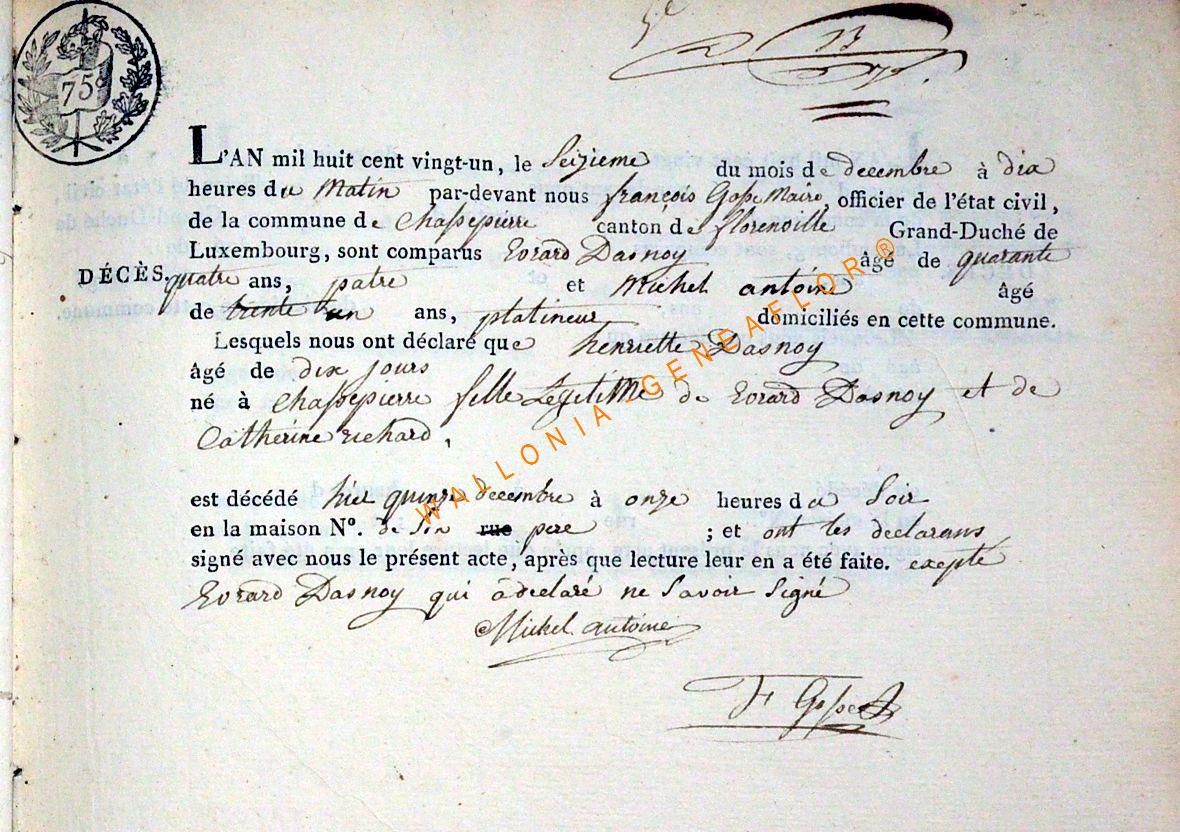 75
13
L'AN mil huit cent vingt-un, le Seizieme du mois de decembre à dix
heures du Matin par-devant nous françois Gosse Maire, officier de l'état civil,
de la commune de Chassepierre canton de florenville Grand-Duché de
Luxembourg, sont comparus Evrard Dasnoy âgé de quarante
DÉCÈS. quatre ans, patre et Michel antoine âgé
de trente un ans, platineur domiciliés en cette commune.
Lesquels nous ont déclaré que henriette Dasnoy
âgé de dix jours
né à Chassepierre fille Legitime de Evrard Dasnoy et de
Catherine richard,
est décédé hier quinze decembre à onze heures du Soir
en la maison N°. de Son rue pere ; et ont les declarans
signé avec nous le présent acte, après que lecture leur en a été faite. exepté
Evrard Dasnoy qui à declaré ne Savoir Signé
Michel antoine
F Gosse
WALLONIA GENEAFLOR ®